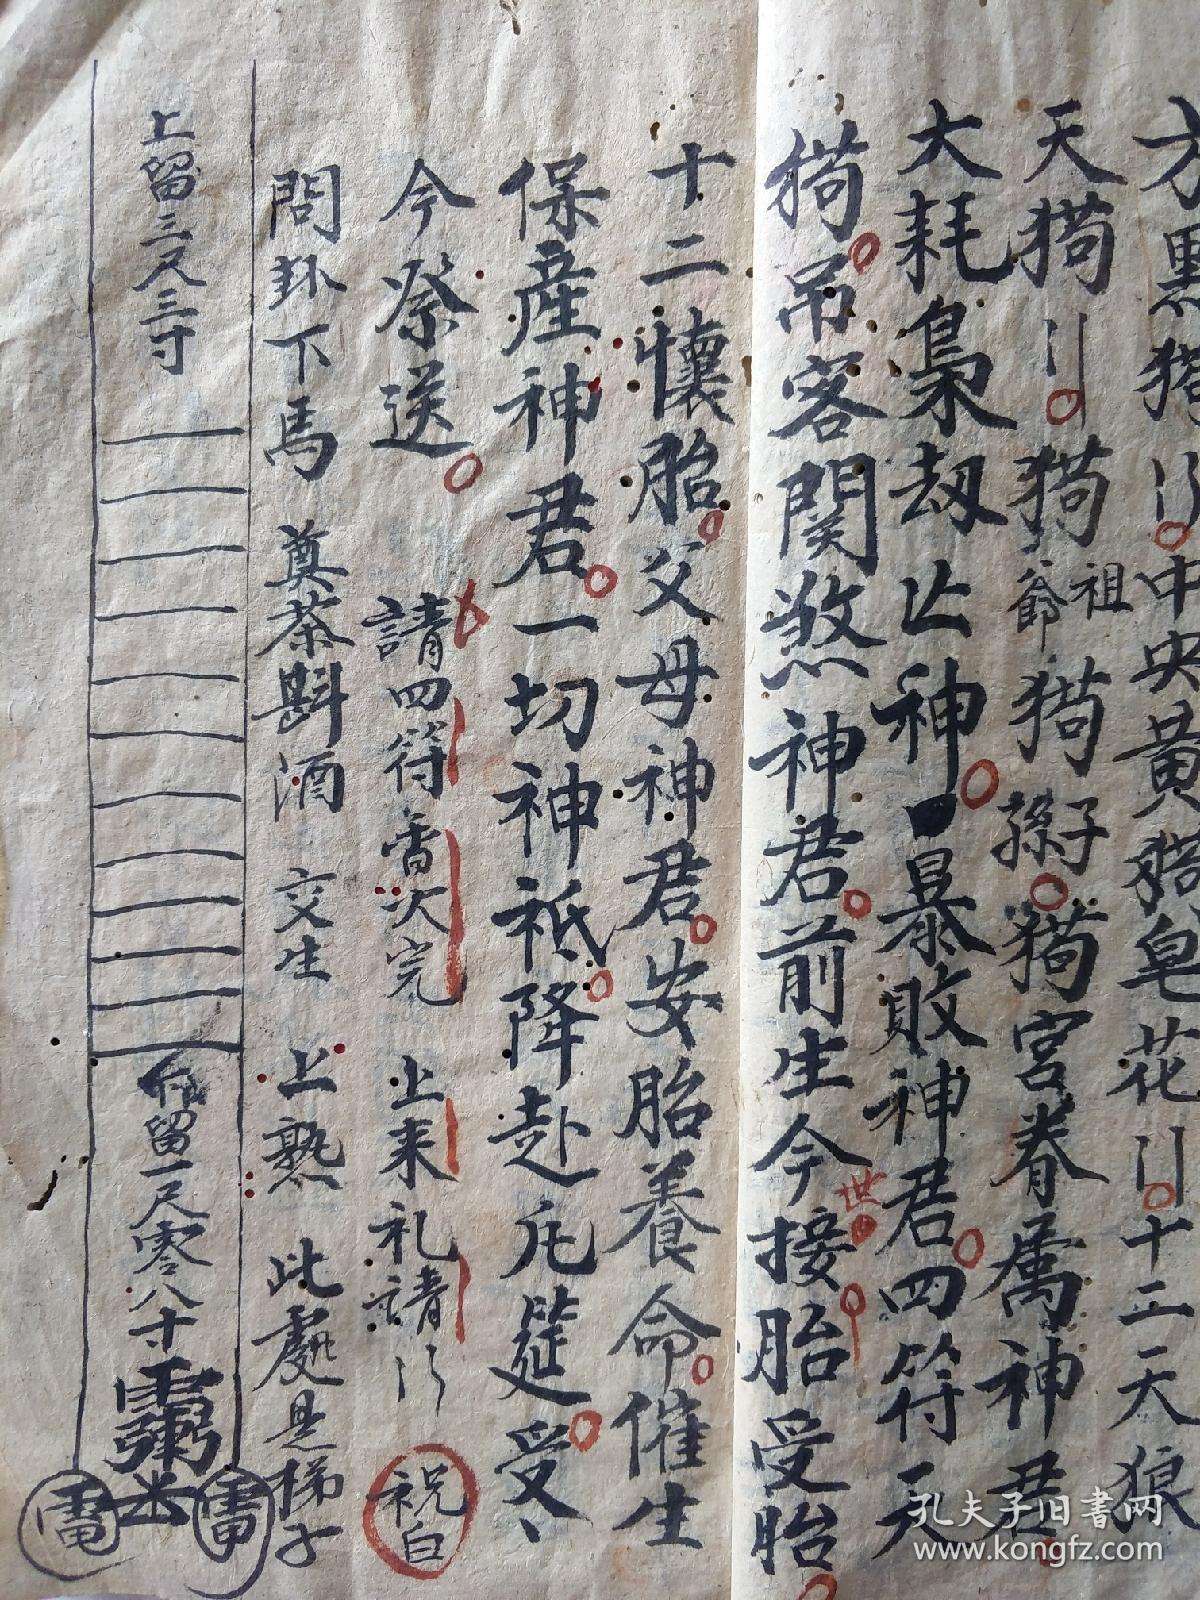 方黑猪 中央黃猪皂花 十二天狼
天狗 狗爺祖狗孫子狗宮眷属神君
大耗梟劫亡神暴敗神君四符天
狗吊客関煞神君前生今世接胎受胎
十二懷胎父母神君安胎養命催生
保産神君一切神祇降赴凡筵受
今祭送 請四符香次完 上来礼請 祝白
問卦下馬 奠茶斟酒 交生 上熟 此處是梯子
上留三尺三寸
留一尺零八寸
孔夫子旧書网
www.kongfz.com